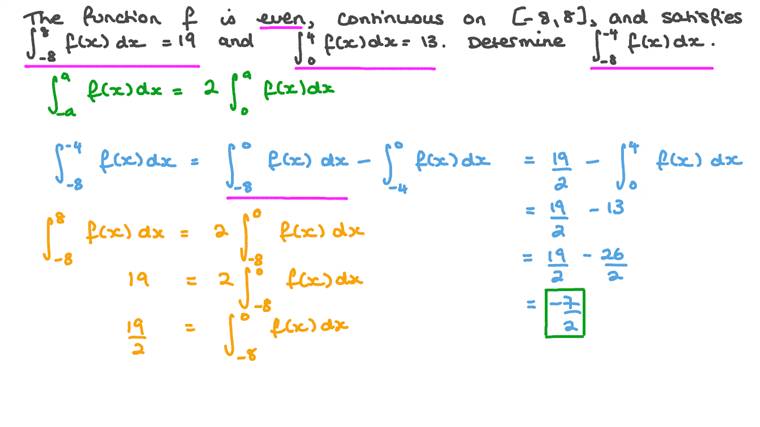 The function f is even, continuous on [-8,8], and satisfies
∫_{-8}^{8} f(x) dx = 19 and ∫_{0}^{4} f(x)dx = 13. Determine ∫_{-8}^{-4} f(x)dx.
∫_{-a}^{a} f(x)dx = 2 ∫_{0}^{a} f(x)dx
∫_{-8}^{-4} f(x)dx = ∫_{-8}^{0} f(x) dx - ∫_{-4}^{0} f(x)dx = 19/2 - ∫_{0}^{4} f(x) dx
= 19/2 - 13
= 19/2 - 26/2
= -7/2
∫_{-8}^{8} f(x)dx = 2 ∫_{-8}^{0} f(x)dx
19 = 2 ∫_{-8}^{0} f(x)dx
19/2 = ∫_{-8}^{0} f(x)dx